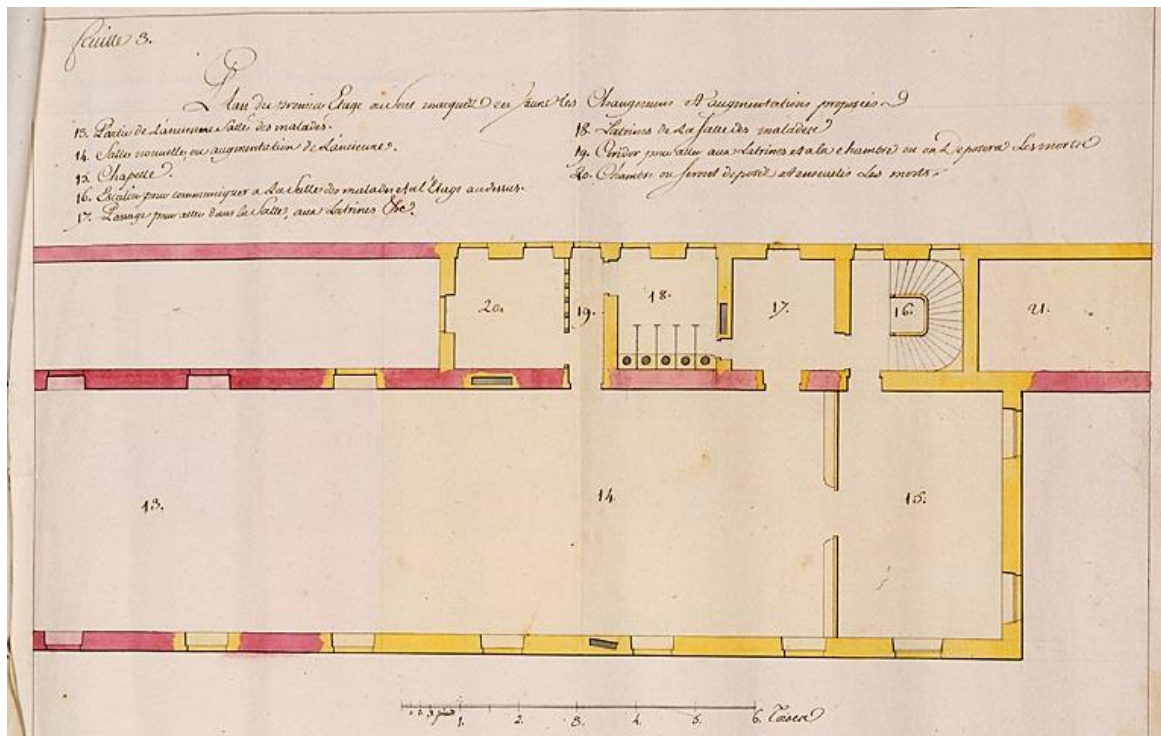 feuille 3.
Plan du premier Etage ou sont marquées en jaune les Changemens et augmentations proposées
13. Partie de L'ancienne Salle des malades.
14. Salle nouvelle, ou augmentation de L'ancienne.
15. Chapelle.
16. Escalier pour communiquer a La Salle des malades et a l'Etage au dessus.
17. Passage pour aller dans la Salle, aux Latrines &c.
18. Latrines de La Salle des malades
19. Coridor pour aller aux Latrines et a la chambre ou on Deposera Les morts
20. Chambre ou seront deposés et ensevelis Les morts.
20. 19. 18. 17. 16. 21.
13. 14. 15.
1. 2. 3. 4. 5. 6. Toises